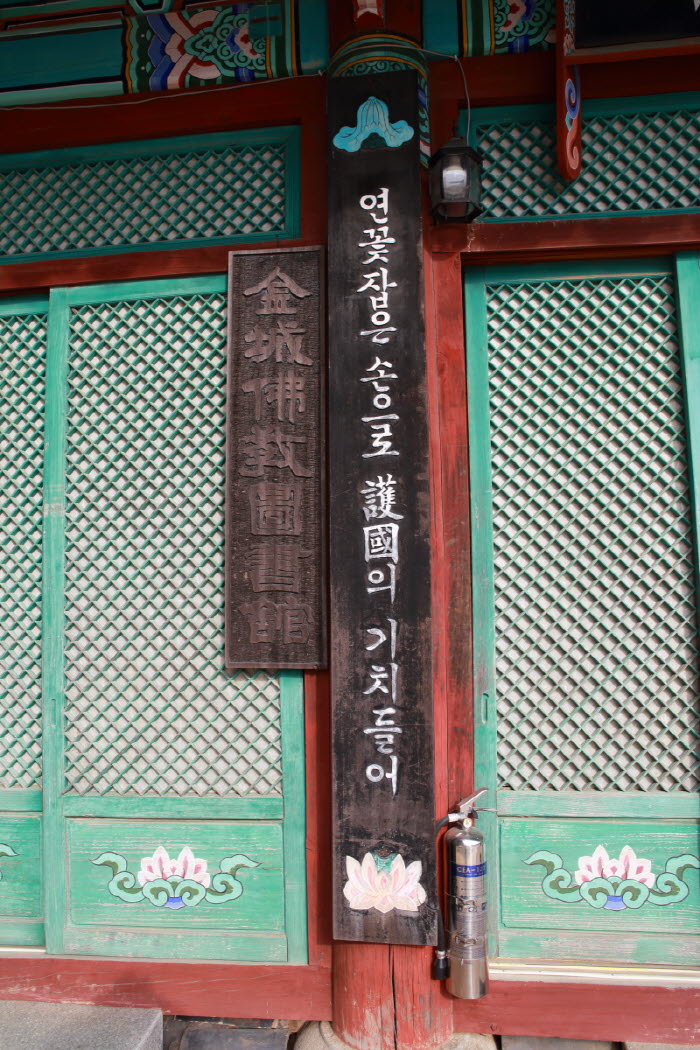 金城佛教圖書館
연꽃잡은 손으로 護國의 기치들어